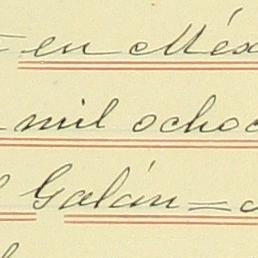 = en Méx
mil ochoc
Galán =